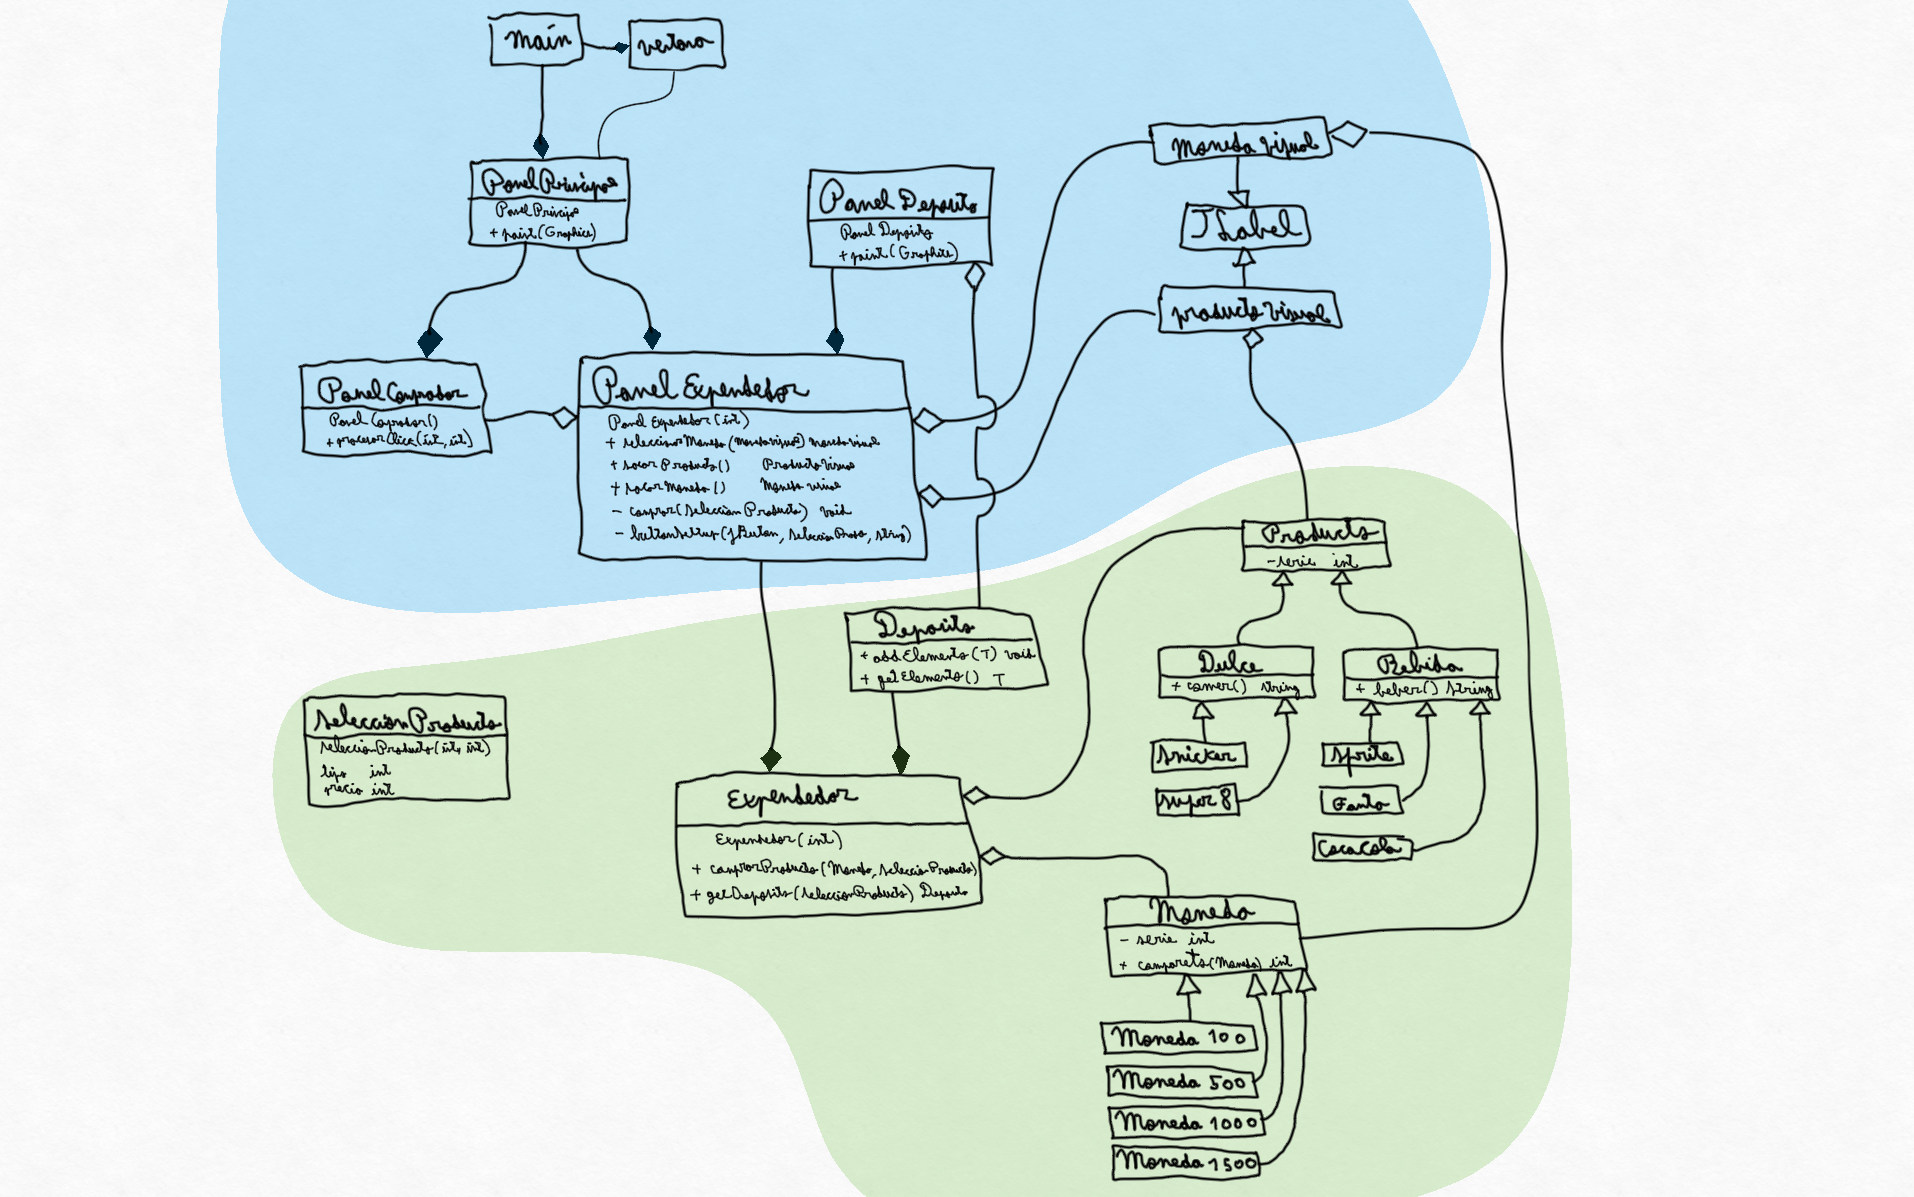 Main
Ventana
Panel Principal
Panel Principal
+ paint (Graphics)
Panel Deposito
Panel Deposito
+ paint (Graphics)
Moneda Visual
JLabel
producto Visual
Panel Comprador
Panel Comprador()
+ procesar Click (int, int)
Panel Expendedor
Panel Expendedor (int)
+ seleccionar Moneda (moneda visual) moneda visual
+ sacar Producto() Producto Visual
+ sacar Moneda () Moneda visual
- comprar (Seleccion Producto) void
- button Settup (JButton, Seleccion Produ, String)
Producto
- serie int
Deposito
+ add Elemento (T) void
+ get Elemento () T
Dulce
+ comer() string
Bebida
+ beber() String
Snicker
Super 8
Sprite
Fanta
CocaCola
Seleccion Producto
Seleccion Producto (int, int)
tipo int
precio int
Expendedor
Expendedor (int)
+ comprar Producto (Moneda, Seleccion Producto)
+ get Deposito (Seleccion Producto) Deposito
Moneda
- serie int
+ compareto (Moneda) int
Moneda 100
Moneda 500
Moneda 1000
Moneda 1500